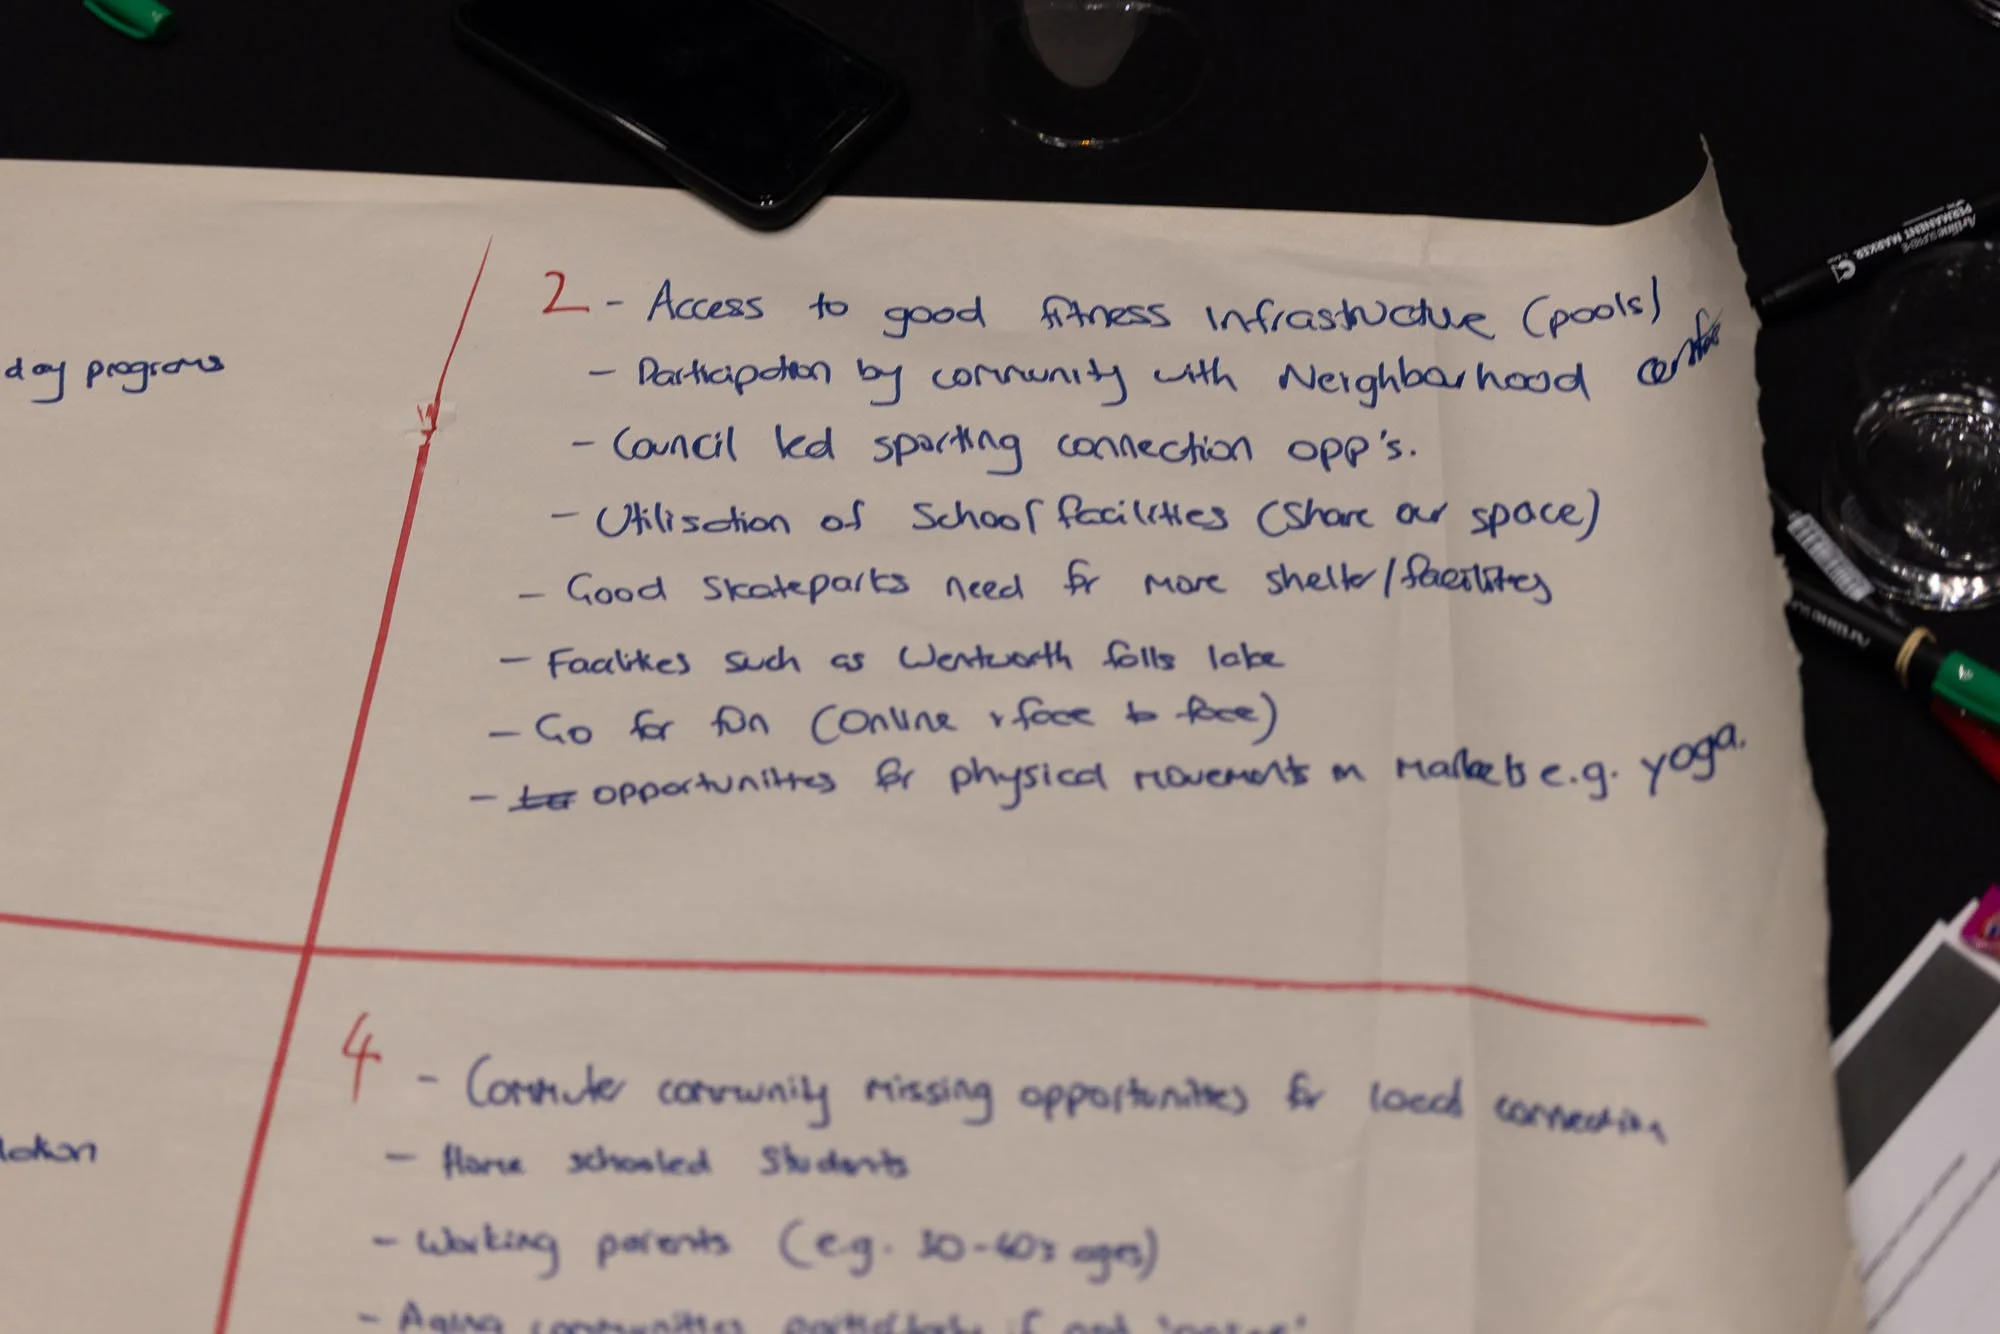 day programs
2 - Access to good fitness infrastructure (pools)
- Participation by community with Neighbourhood centre
- Council led sporting connection opp's.
- Utilisation of School facilities (Share our space)
- Good Skateparks need for more shelter/facilities
- Facilities such as Wentworth falls lake
- Go for fun (Online + face to face)
- opportunities for physical movements in markets e.g. yoga.
4 - Commuter community missing opportunities for local connection
- Home schooled Students
- Working parents (e.g. 30-40's ages)
- Aging communities particularly if not
Artline
PERMANENT MARKER